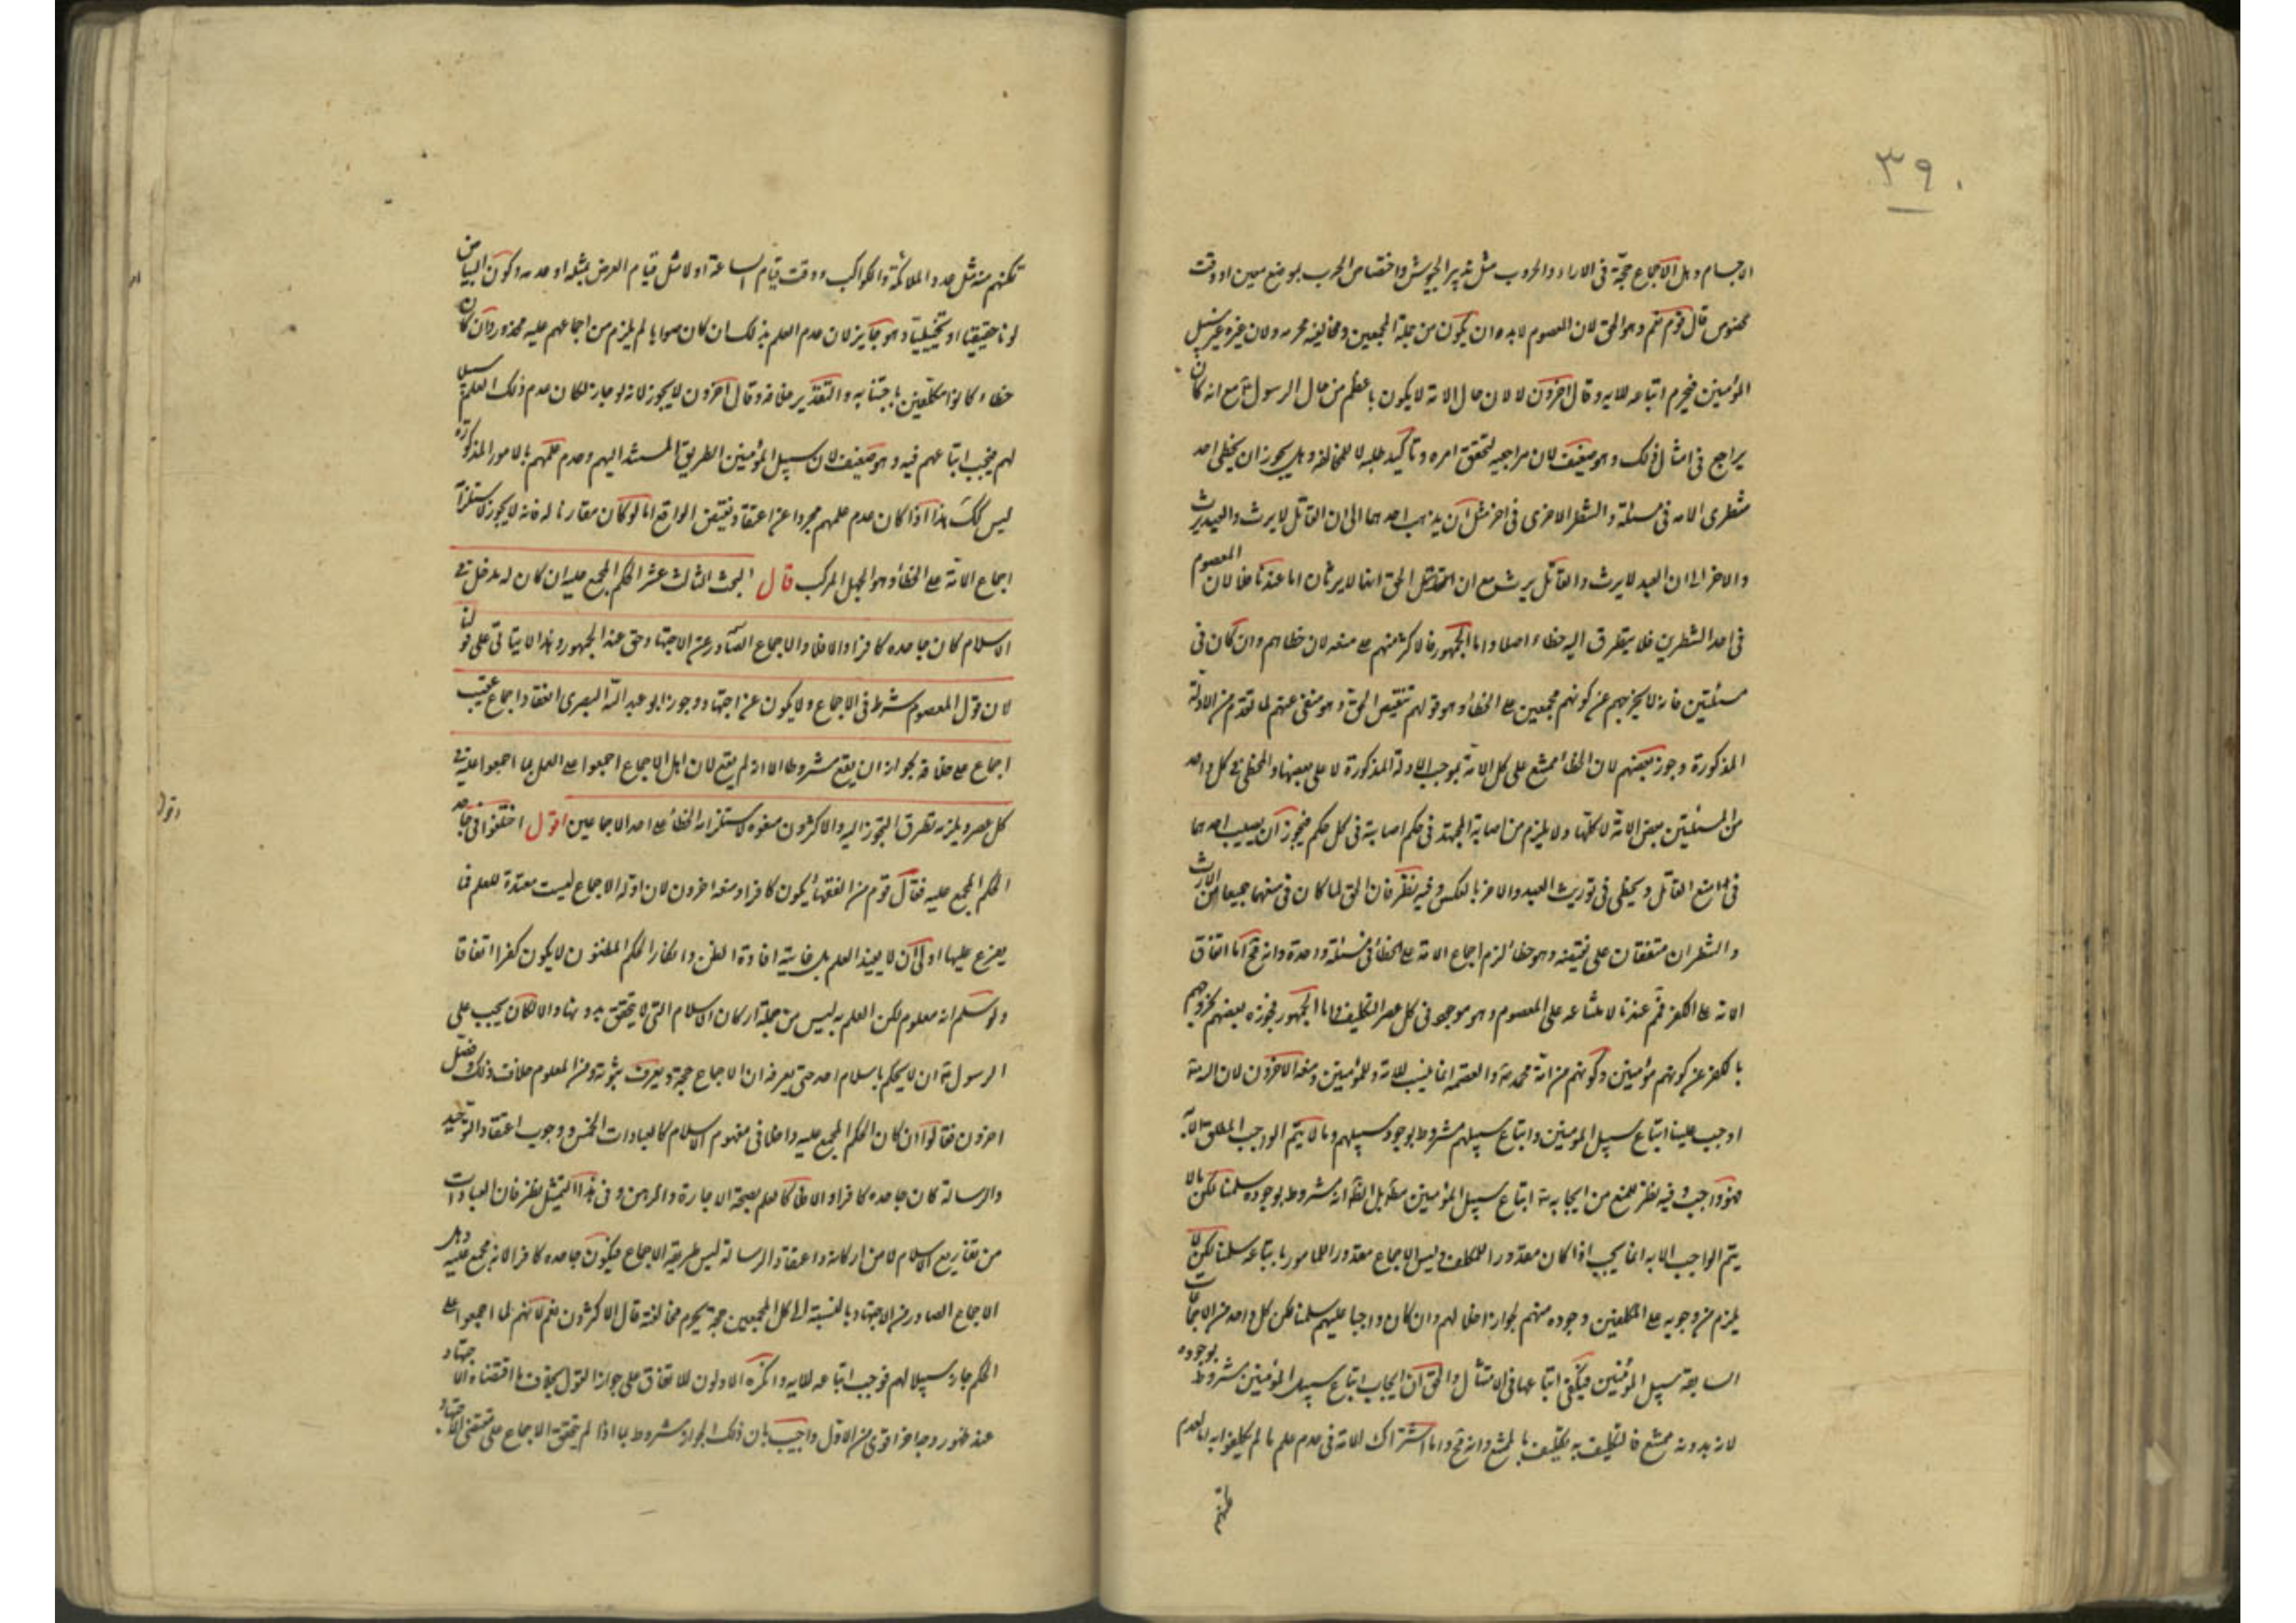 ٣٩٠
الاجسام وهل الاجماع حجة فى الاراء والحروب مثل تدبير الجيوش واختصاص الحرب بموضع معين او وقت
مخصوص قال قوم نعم وهو الحق لان المعصوم لابد ان يكون من جملة المجمعين ومخالفته محرمة ولان غيره غير سبيل
المؤمنين فيحرم اتباعه للاية وقال اخرون لا لان حال الامة لا يكون باعظم من حال الرسول مع انه كان
يراجع فى امثال ذلك وهو ضعيف لان مراجعته لتحقق امره وتاكيد طلبه لا للمخالفة وهل يجوز ان يخطى احد
شطرى الامة فى مسئلة والشطر الاخرى فى اخر مثل ان يذهب احدهما الى ان القاتل لا يرث والعبد يرث
والاخر الى ان العبد لا يرث والقاتل يرث مع ان الحق انهما لا يرثان اما عندنا فلا لان المعصوم
فى احد الشطرين فلا يتطرق اليه خطاء اصلا واما الجمهور فالاكثر منهم على منعه لان خطاهم وان كان فى
مسئلتين فانه لا يخرجهم عن كونهم مجمعين على الخطأ وهو قولهم بنقيض الحق وهو منفى عنهم لما تقدم من الادلة
المذكورة وجوز بعضهم لان الخطأ ممتنع على كل الامة بموجب الادلة المذكورة لا على بعضها والمخطى فى كل واحد
من المسئلتين بعض الامة لا كلها ولا يلزم من اصابة المجتهد فى حكم اصابته فى كل حكم فيجوز ان يصيب احدهما
فى منع القاتل ويخطى فى توريث العبد والاخر بالعكس وفيه نظر فان الحق لما كان فى منعهما جميعا من الارث
والشطران متفقان على نقيضه وهو خطأ لزم اجماع الامة على الخطأ فى مسئلة واحدة وانه مح اما اتفاق
الامة على الكفر فمح عندنا لامتناعه على المعصوم وهو موجود فى كل عصر التكليف واما الجمهور فجوزه بعضهم لخروجهم
بالكفر عن كونهم مؤمنين وكونهم من امة محمد والعصمة انما ثبت للامة وللمؤمنين ومنعه الاخرون لان الله تعه
اوجب علينا اتباع سبيل المؤمنين واتباع سبيلهم مشروط بوجود سبيلهم وما لا يتم الواجب المطلق الا به
فهو واجب وفيه نظر للمنع من ايجابه تعه اتباع سبيل المؤمنين مطلقا بل الظ انه مشروط بوجوده سلمنا لكن ما لا
يتم الواجب الا به انما يجب اذا كان مقدورا للمكلف وليس الاجماع مقدورا للمامور باتباعه سلمنا لكن لا
يلزم من وجوبه على المكلفين وجوده منهم لجواز اخلالهم وان كان واجبا عليهم سلمنا لكن كل واحد من الاجماعات
السابقة سبيل المؤمنين فيكفى اتباعها فى الامتثال والحق ان ايجاب اتباع سبيل المؤمنين مشروط بوجوده
لانه بدونه ممتنع فالتكليف به تكليف بالممتنع وانه مح واما اشتراك الامة فى عدم علم ما لم يكلفوا به لعدم
تمكنهم منه مثل عدد الملائكة والكواكب ووقت قيام الساعة او لا مثل قيام العرض بمثله او عدمه وكون البياض
لونا حقيقيا او تخييليا وهو جايز لان عدم العلم بذلك ان كان صوابا لم يلزم من اجماعهم عليه محذور وان كان
خطاء كانوا مكلفين باجتنابه والتقدير خلافه وقال اخرون لا يجوز لانه لو جاز لكان عدم ذلك العلم سبيلا
لهم فيجب اتباعهم فيه وهو ضعيف لان سبيل المؤمنين الطريق المستند اليهم وعدم علمهم بالامور المذكورة
ليس كك هذا اذا كان عدم علمهم مجردا عن اعتقاد نقيض الواقع اما لو كان مقارنا له فانه لا يجوز لاستلزامه
اجماع الامة على الخطأ وهو الجهل المركب قال البحث الثالث عشر الحكم المجمع عليه ان كان له مدخل فى
الاسلام كان جاحده كافرا والا فلا والاجماع الصادر عن الاجتهاد حق عند الجمهور وهذا لا يتاتى على قولنا
لان قول المعصوم شرط فى الاجماع ولا يكون عن اجتهاد وجوز ابو عبد الله البصرى انعقاد اجماع عقيب
اجماع على خلافه لجواز ان يقع مشروطا الا انه لم يقع لان اهل الاجماع اجمعوا على العمل بما اجمعوا عليه فى
كل عصر ويلزمه تطرق التجوز اليه والاكثرون منعوه لاستلزامه الخطأ على احد الاجماعين اقول اختلفوا فى جاحد
الحكم المجمع عليه فقال قوم من الفقهاء يكون كافرا ومنعه اخرون لان ادلة الاجماع ليست مفيدة للعلم فما
يفرع عليها اولى ان لا يفيد العلم بل غايته افادة الظن وانكار الحكم المظنون لا يكون كفرا اتفاقا
ولو سلم انه معلوم لكن العلم به ليس من جملة اركان الاسلام التى لا يتحقق بدونها والا لكان يجب على
الرسول ان لا يحكم باسلام احد حتى يعرفه ان الاجماع حجة ويعرف ثبوته ومن المعلوم خلاف ذلك وفصل
اخرون فقالوا ان كان الحكم المجمع عليه داخلا فى مفهوم الاسلام كالعبادات الخمس ووجوب اعتقاد التوحيد
والرسالة كان جاحده كافرا والا فلا كالعلم بصحة الاجارة والرهن وفى هذا التمثيل نظر فان العبادات
من تفاريع الاسلام لا من اركانه واعتقاد الرسالة ليس طريقه الاجماع فيكون جاحده كافرا لانه مجمع عليه وهل
الاجماع الصادر عن الاجتهاد بالنسبة الى كل المجمعين حجة يحرم مخالفته قال الاكثرون نعم لانهم لما اجمعوا على
الحكم صار سبيلا لهم فوجب اتباعه للاية وانكره الاولون للاتفاق على جواز القول بخلاف ما اقتضاه الاجتهاد
عند ظهور وجه اخر اقوى من الاول واجيب بان ذلك الجواز مشروط بما اذا لم يتحقق الاجماع على مقتضى الاجتهاد